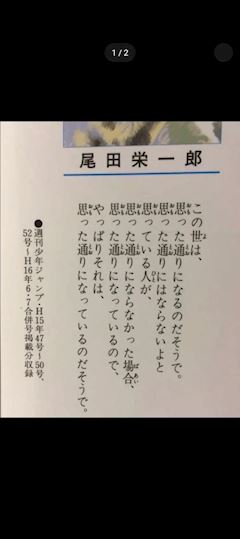 1/2
尾田栄一郎
この世は、
思った通りになるのだそうで。
思った通りにはならないよと
思っている人が、
思った通りにならなかった場合、
思った通りになっているので、
やっぱりそれは、
思った通りになっているのだそうで。
●週刊少年ジャンプ・H15年47号〜50号、
52号〜H16年6・7合併号掲載分収録